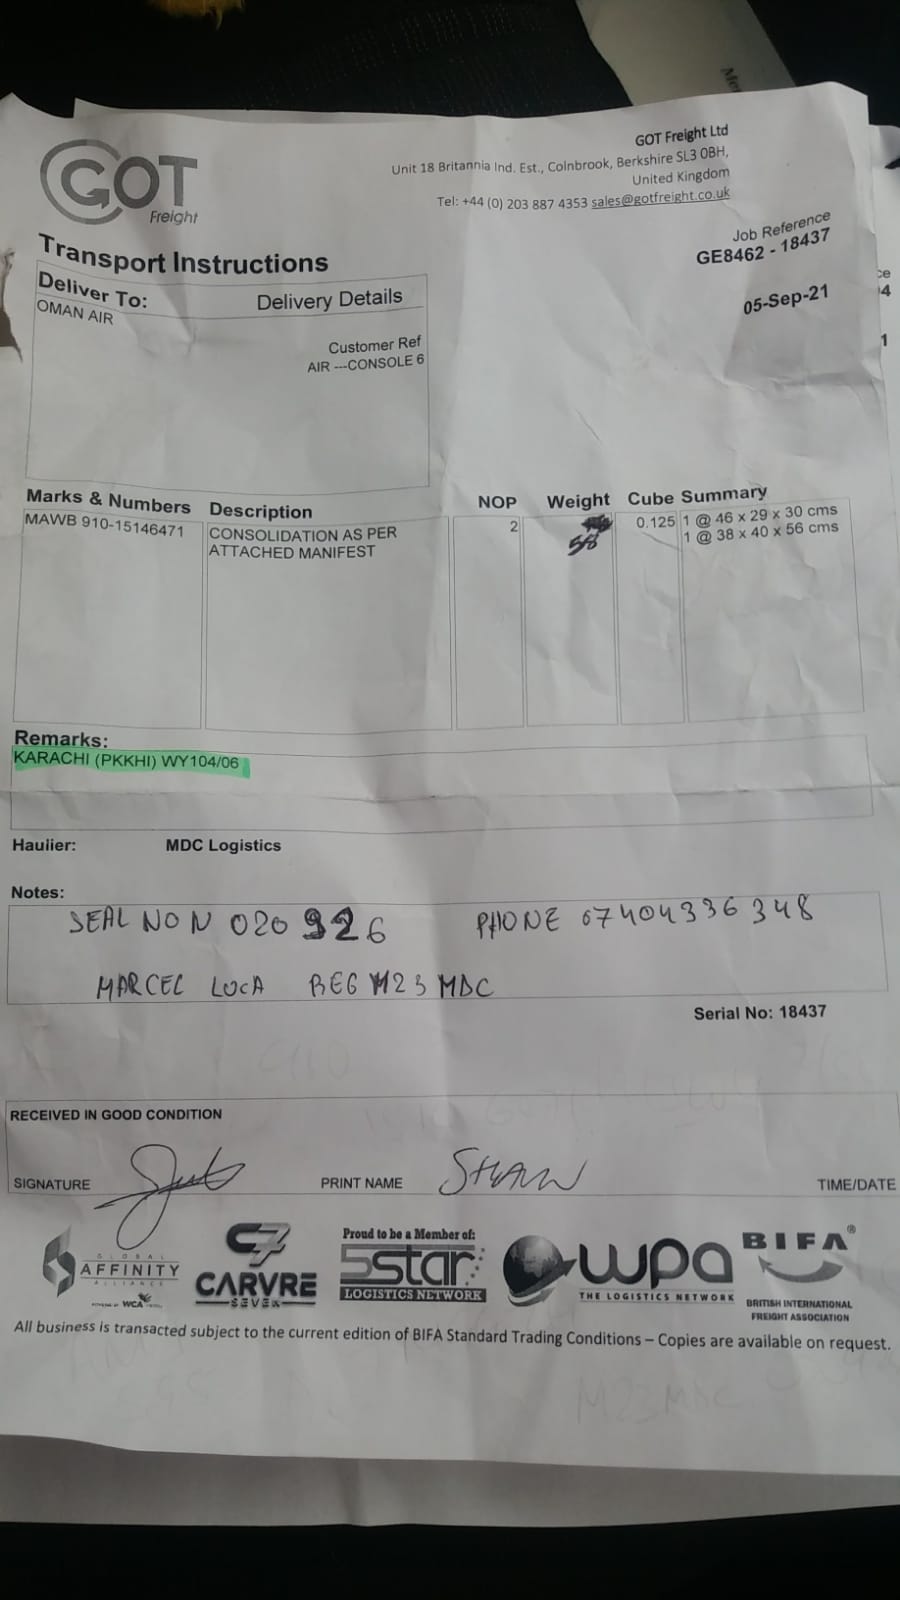 GOT
Freight
GOT Freight Ltd
Unit 18 Britannia Ind. Est., Colnbrook, Berkshire SL3 0BH,
United Kingdom
Tel: +44 (0) 203 887 4353 sales@gotfreight.co.uk
Transport Instructions
Job Reference
GE8462 - 18437
05-Sep-21
Deliver To: Delivery Details
OMAN AIR
Customer Ref
AIR ---CONSOLE 6
Marks & Numbers Description NOP Weight Cube Summary
MAWB 910-15146471 CONSOLIDATION AS PER 2 0.125 1 @ 46 x 29 x 30 cms
ATTACHED MANIFEST 58 1 @ 38 x 40 x 56 cms
Remarks:
KARACHI (PKKHI) WY104/06
Haulier: MDC Logistics
Notes:
SEAL NO N 020926 PHONE 07404336348
MARCEL LUCA REG M23 MDC
Serial No: 18437
RECEIVED IN GOOD CONDITION
SIGNATURE PRINT NAME TIME/DATE
GLOBAL
AFFINITY
ALLIANCE
POWERED BY WCA
CARVRE
SEVEN
Proud to be a Member of:
5star
LOGISTICS NETWORK
wpa
THE LOGISTICS NETWORK
BIFA®
BRITISH INTERNATIONAL
FREIGHT ASSOCIATION
All business is transacted subject to the current edition of BIFA Standard Trading Conditions – Copies are available on request.